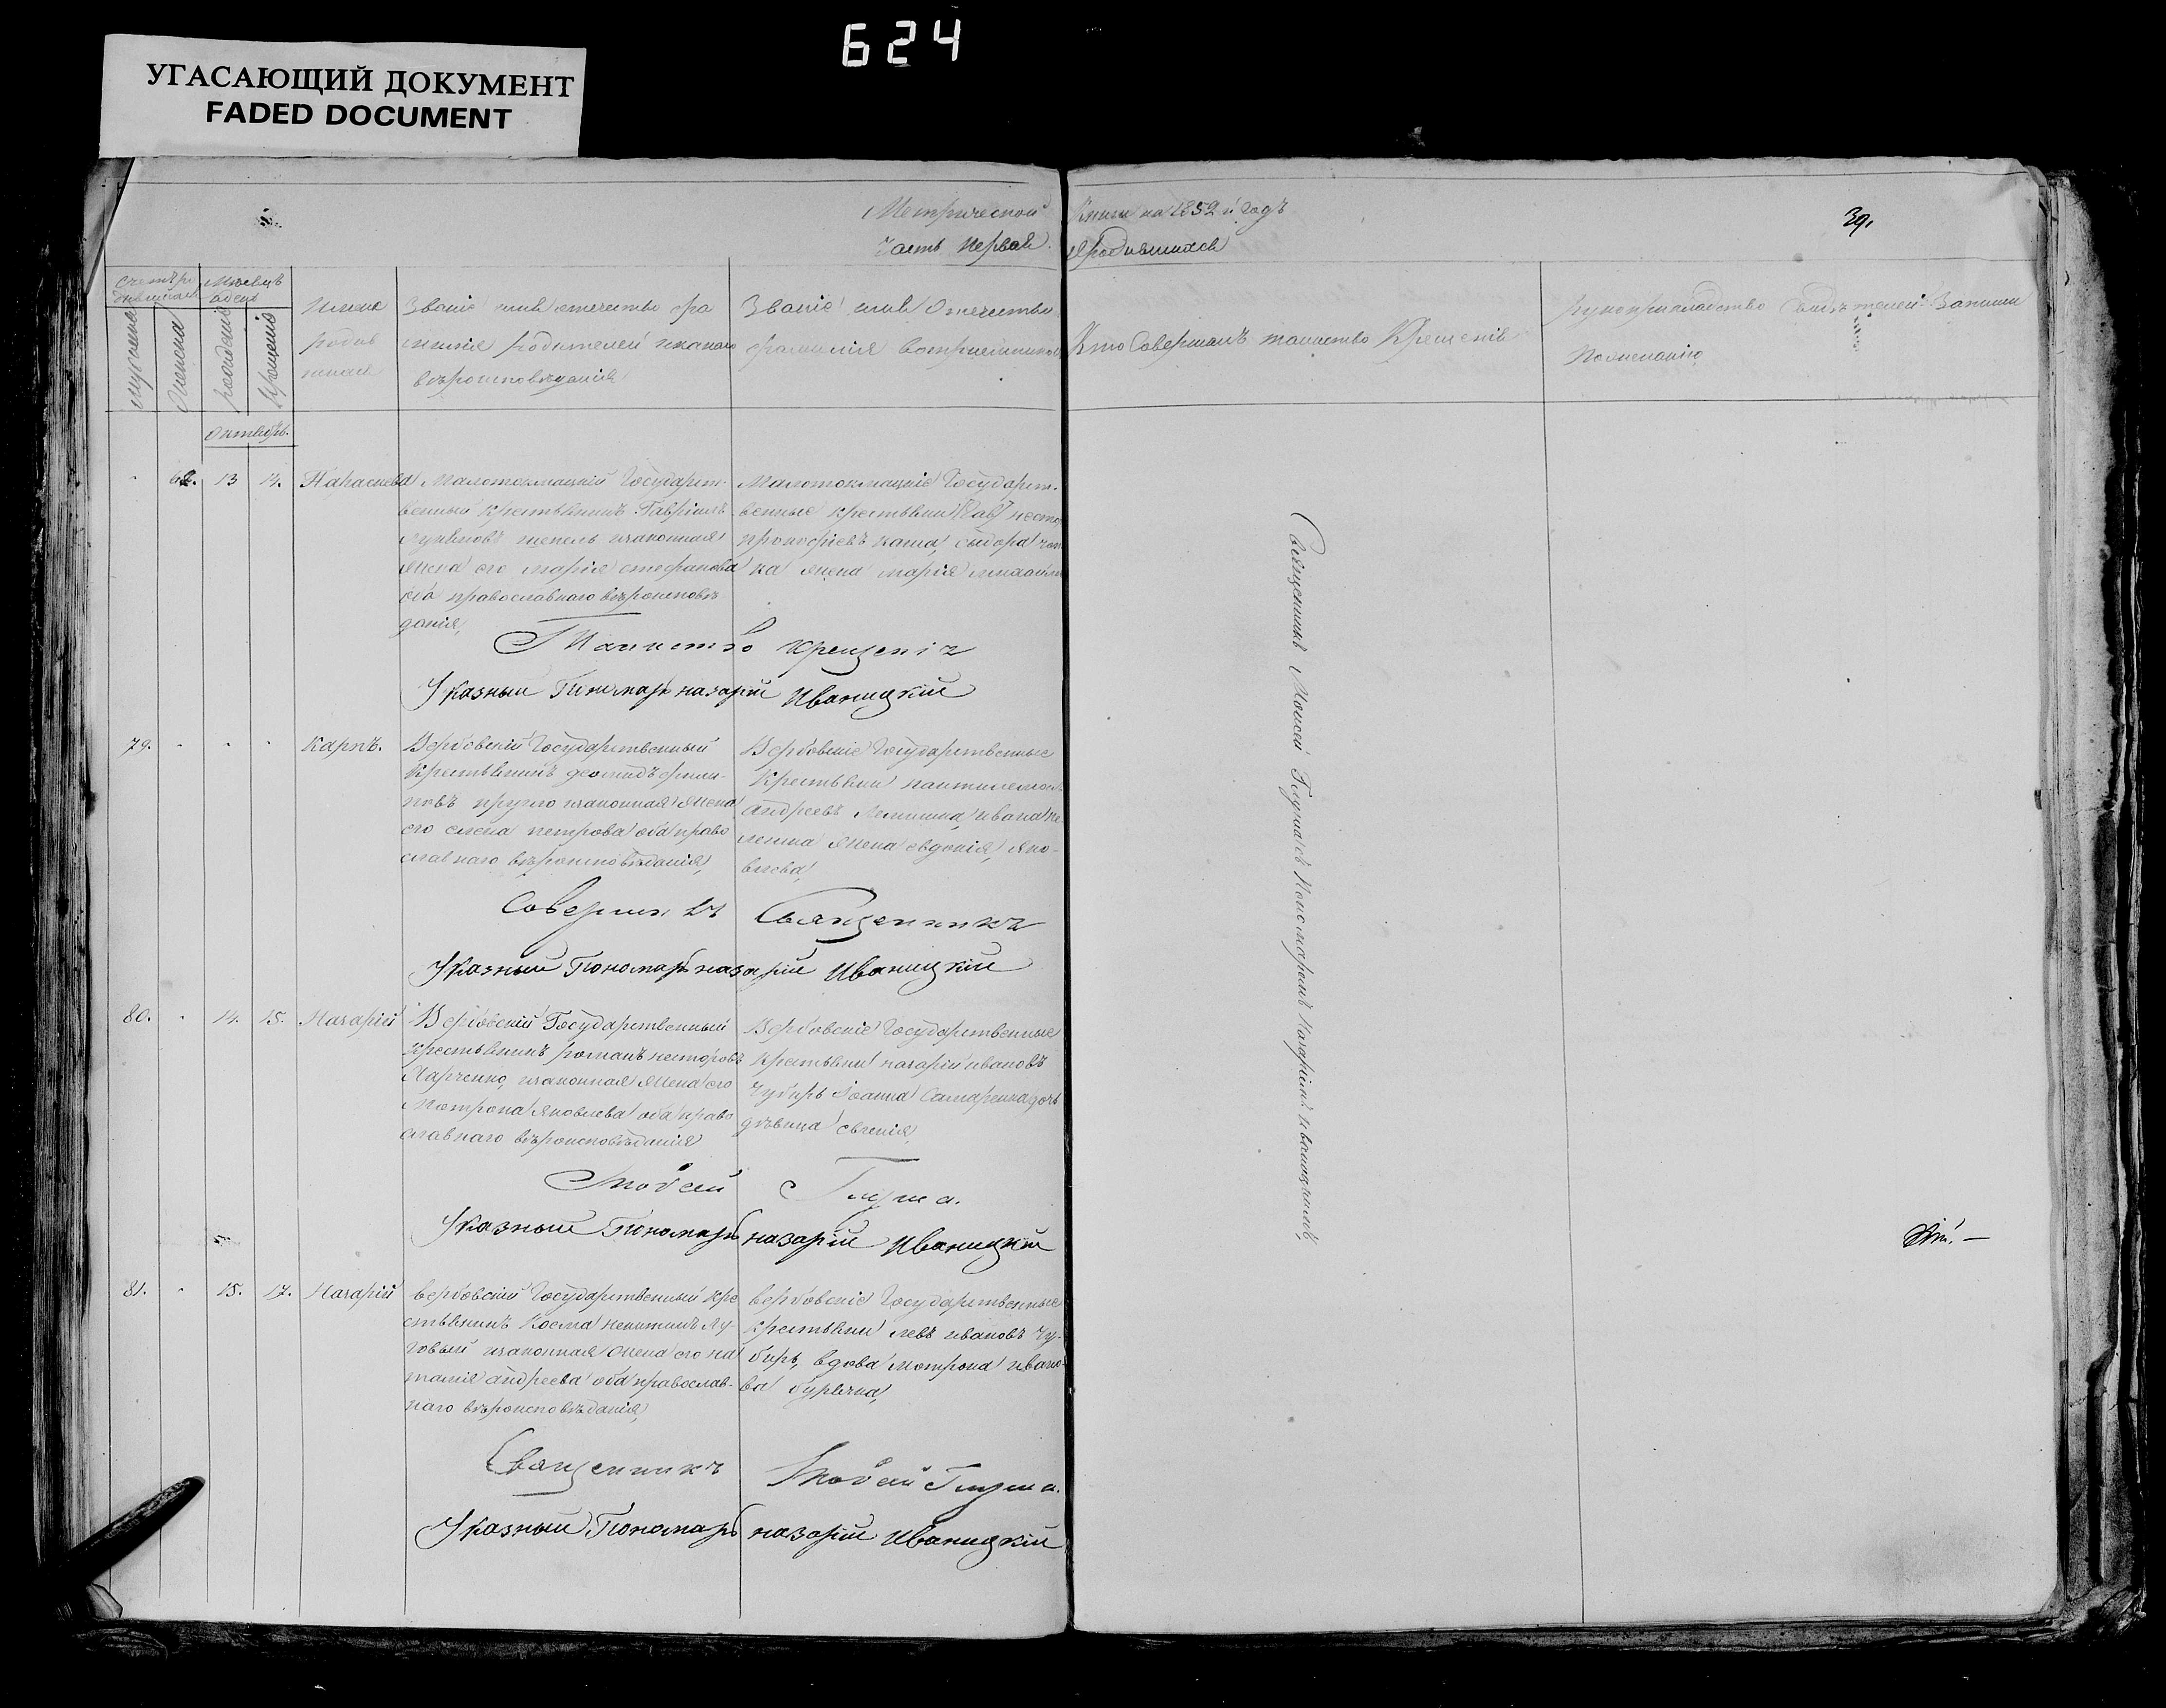 624
УГАСАЮЩИЙ ДОКУМЕНТ
FADED DOCUMENT
Метрической Книги на 1852й годъ
39.
Часть первая о родившихся
Счетъ ро
дившихся
Мѣсяцъ
и день
мужеска
женска
рожденія
крещенія
Имена
родив
шихся
Званіе имя отечество фа
милія родителей и какого
вѣроисповѣданія
Званіе имя Отечество
фамилія воспріемниковъ
Кто Совершалъ таинство Крещенія
Рукоприкладство Свидѣтелей Записи
по желанію
октябрь.
62. 13 14. Параскева
Малотокмацкій Государст-
венный крестьянинъ Гавріилъ
Лукьяновъ шепель и законная
жена его Марія стефанова
оба православнаго вѣроисповѣ
данія,
Малотокмацкіе Государст-
венные крестьяне
прокофіевъ каша, сидора
ка жена марія михайло
Таинство крещенія
Указный Пономарь назарій Иваницкій
79. Карпъ.
Вербовскій Государственный
Крестьянинъ деомидъ фили-
повъ кругло и законная жена
его елена петрова оба право
славнаго вѣроисповѣданія,
Вербовскіе Государственные
Крестьяне пантилемонъ
андреевъ Лемишка, ивана
жена евдокія, яко-
влева,
Совершилъ Священникъ
Указный Пономарь назарій Иваницкій
80. 14. 15. Назарій
Вербовскій Государственный
крестьянинъ романъ несторовъ
Харченко, и законная жена его
Мотрона Яковлева оба право
славнаго вѣроисповѣданія
Вербовскіе Государственные
крестьяне назарій ивановъ
Чубирь Іоанна Самаренка дочь
дѣвица евгенія,
Мовсей Глуша.
Указный Пономарь назарій Иваницкій
81. 15. 17. Назарій
вербовскій Государственный кре
стьянинъ Косма никитинъ Лу-
говый и законная жена его на
талія андреева оба православ-
наго вѣроисповѣданія,
вербовскіе Государственные
крестьяне левъ ивановъ Чу-
бирь, вдова мотрона ивано
ва бурячка,
Священникъ Мовсей Глуша.
Указный Пономарь назарій Иваницкій
Священникъ Моисей Глуша съ Пономаремъ Назаріемъ иваницкимъ,